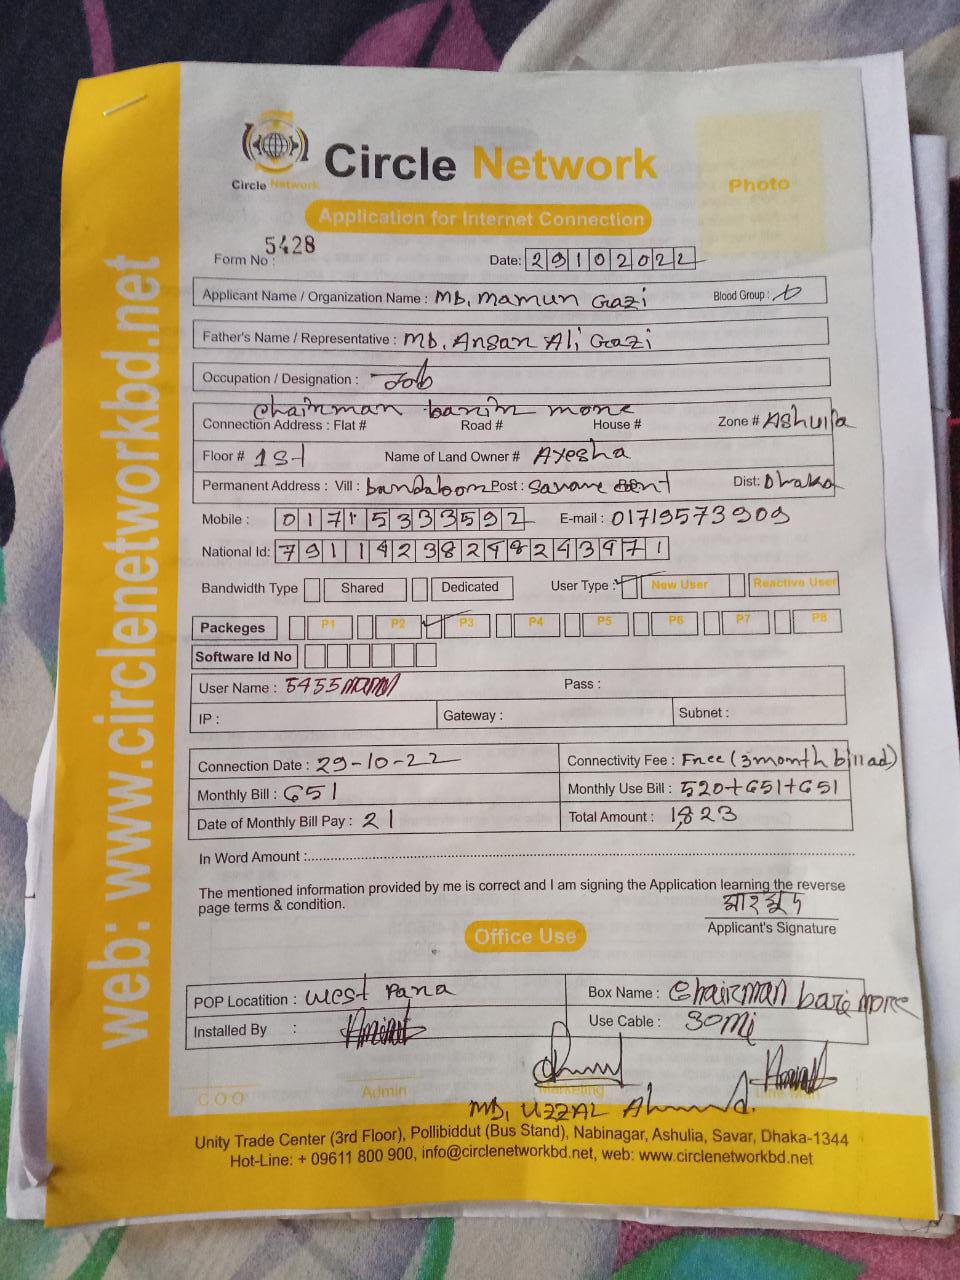 Circle Network
Circle Network
Photo
Application for Internet Connection
Form No : 5428
Date: 29102022
Applicant Name / Organization Name : MD, Mamun Gazi Blood Group :
Father's Name / Representative : MD, Ansar Ali Gazi
Occupation / Designation : Job
Chairman barir more
Connection Address : Flat # Road # House # Zone # Ashulia
Floor # 1st Name of Land Owner # Ayesha
Permanent Address : Vill : Post : Savar Dist: Dhaka
Mobile : E-mail : 01719573909
National Id:
Bandwidth Type Shared Dedicated User Type : New User Reactive User
Packeges P1 P2 P3 P4 P5 P6 P7 P8
Software Id No
User Name : 5455 Pass :
IP : Gateway : Subnet :
Connection Date : 29-10-22 Connectivity Fee : Free (3 month bill ad)
Monthly Bill : 651 Monthly Use Bill : 520+651+651
Date of Monthly Bill Pay : 21 Total Amount : 1,823
In Word Amount :
The mentioned information provided by me is correct and I am signing the Application learning the reverse
page terms & condition.
Applicant's Signature
Office Use
POP Locatition : West Para Box Name : Chairman bari more
Installed By : Use Cable : 30Mi
C O O Admin Marketing
MD, UZZAL Ahmmed.
Unity Trade Center (3rd Floor), Pollibiddut (Bus Stand), Nabinagar, Ashulia, Savar, Dhaka-1344
Hot-Line: + 09611 800 900, info@circlenetworkbd.net, web: www.circlenetworkbd.net
web: www.circlenetworkbd.net